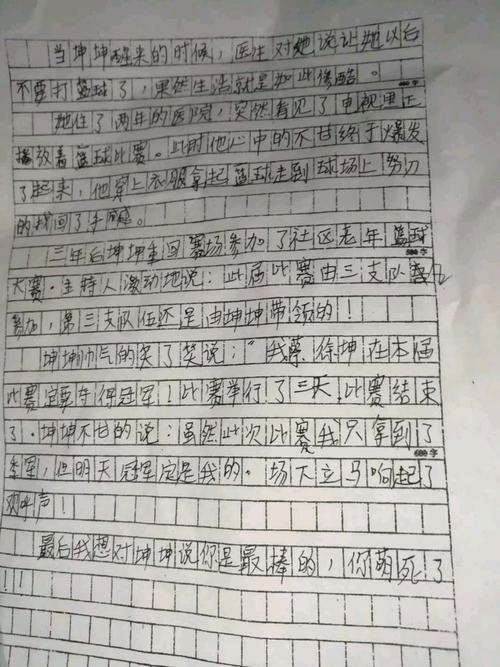 当坤坤醒来的时候，医生对她说让她以后
不要打篮球了，果然生活就是如此惨酷。
她住了两年的医院，突然看见了电视里正
播放着篮球比赛。此时他心中的不甘终于爆发
了起来，他穿上衣服拿起篮球走到球场上努力
的找回了手感。
三年后坤坤重回赛场参加了社区老年篮球
500字
大赛。主持人激动地说：此届比赛由三支队伍
参加，第三支队伍还是由坤坤带领的！
坤坤帅气的笑了笑说：“我蔡徐坤在本届
比赛定要夺得冠军！比赛举行了三天，比赛结束
了。坤坤不甘的说：虽然此次比赛我只拿到了
600字
季军，但明天冠军定是我的。场下立马响起了
欢呼声！
最后我想对坤坤说你是最棒的，你萌死了
！！